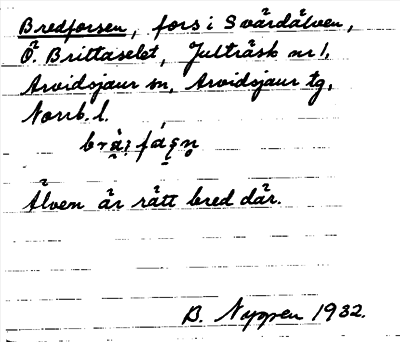 Bredforsen, fors i Svärdälven,
Ö. Brittaselet, Julträsk nr 1,
Arvidsjaur sn, Arvidsjaur tg,
Norrb. l.
Älven är rätt bred där.
B. Nyppen 1932.